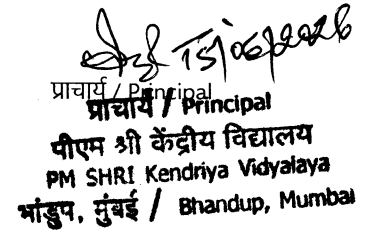 15/06/2026
प्राचार्य / Principal
प्राचार्य / Principal
पीएम श्री केंद्रीय विद्यालय
PM SHRI Kendriya Vidyalaya
भांडुप, मुंबई / Bhandup, Mumbai